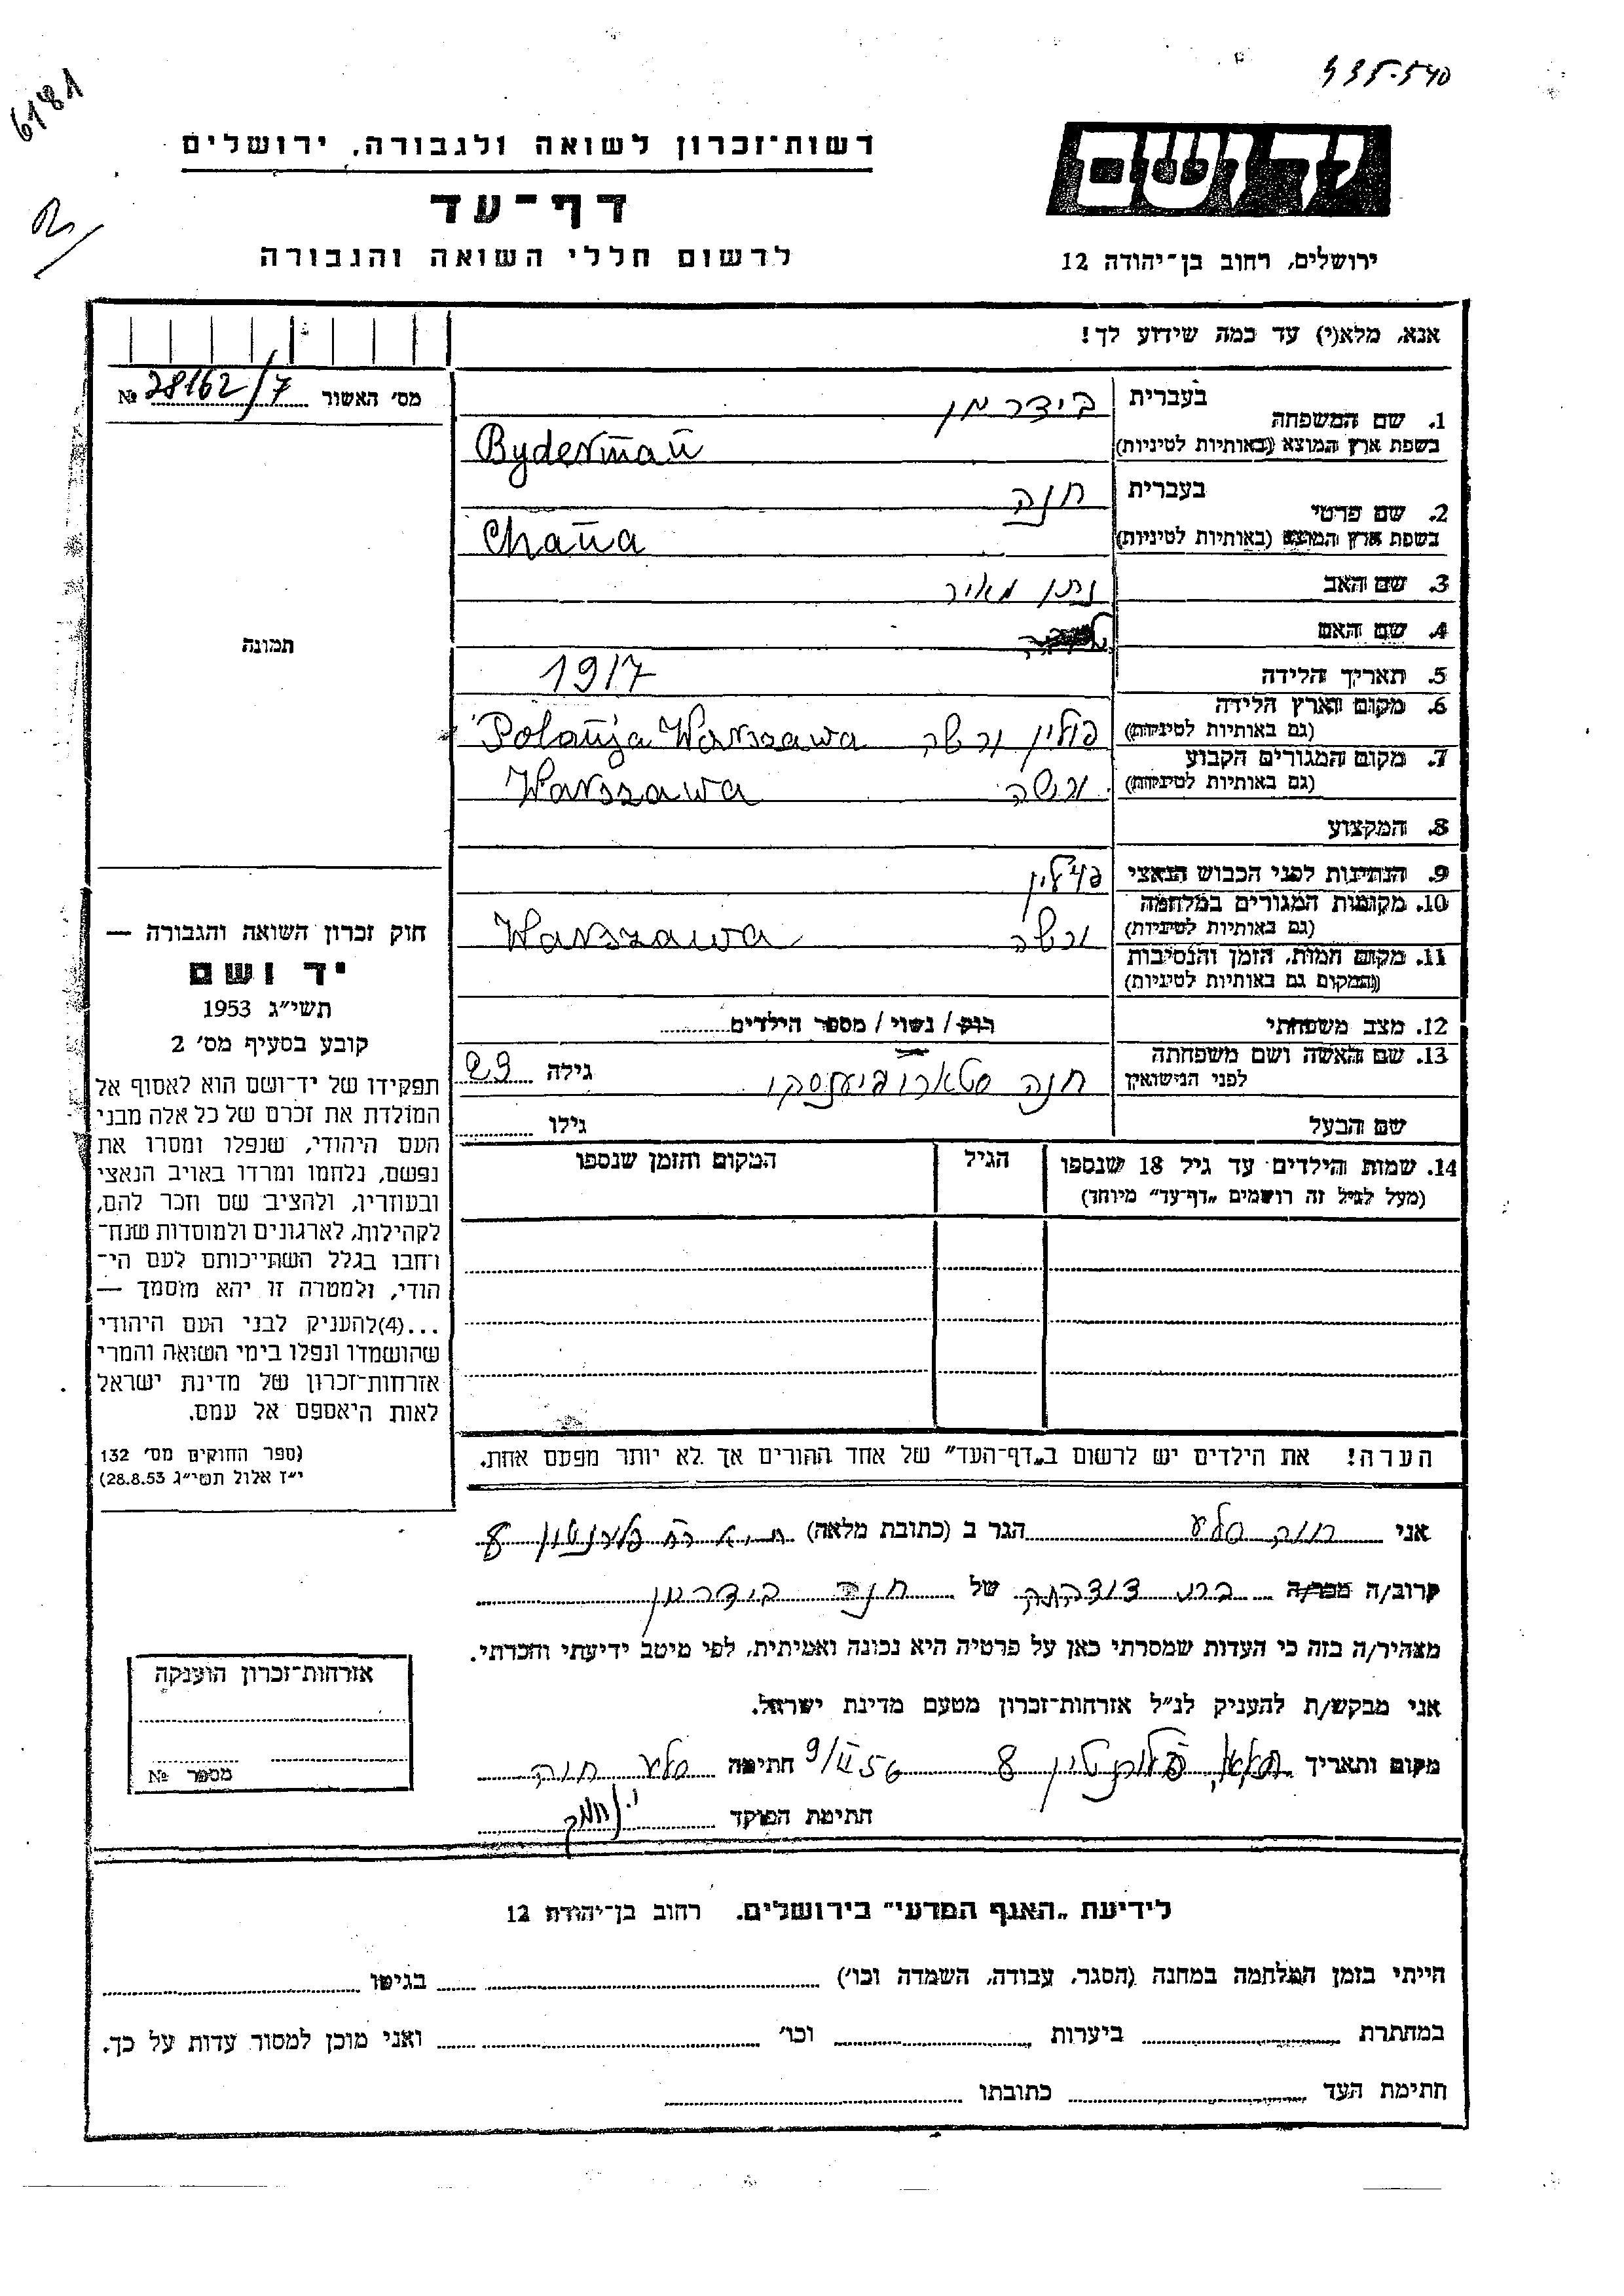 435-540
6181
יד ושם
רשות־זכרון לשואה ולגבורה, ירושלים
דף־עד
לרשום חללי השואה והגבורה
ירושלים, רחוב בן־יהודה 12
אנא, מלא(י) עד כמה שידוע לך!
מס׳ האשור 28162/7 №
1. שם המשפחה
בעברית בידרמן
בשפת ארץ המוצא (באותיות לטיניות) Byderman
2. שם פרטי
בעברית חנה
בשפת ארץ המוצא (באותיות לטיניות) Chana
3. שם האב נתן מאיר
4. שם האם
5. תאריך הלידה 1917
6. מקום וארץ הלידה
(גם באותיות לטיניות) פולין ורשה Polanija Warszawa
7. מקום המגורים הקבוע
(גם באותיות לטיניות) ורשה Warszawa
8. המקצוע
9. הנתינות לפני הכבוש הנאצי פולין
10. מקומות המגורים במלחמה
(גם באותיות לטיניות) ורשה Warszawa
11. מקום המות, הזמן והנסיבות
(המקום גם באותיות לטיניות)
12. מצב משפחתי רווק / נשוי / מספר הילדים
13. שם האשה ושם משפחתה
לפני הנישואין חנה גילה 29
שם הבעל גילו
14. שמות הילדים עד גיל 18 שנספו
(מעל לגיל זה רושמים „דף־עד״ מיוחד)
הגיל
המקום והזמן שנספו
הערה! את הילדים יש לרשום ב„דף־העד״ של אחד ההורים אך לא יותר מפעם אחת.
תמונה
חוק זכרון השואה והגבורה —
יד ושם
תשי״ג 1953
קובע בסעיף מס׳ 2
תפקידו של יד־ושם הוא לאסוף אל
המולדת את זכרם של כל אלה מבני
העם היהודי, שנפלו ומסרו את
נפשם, נלחמו ומרדו באויב הנאצי
ובעוזריו, ולהציב שם וזכר להם,
לקהילות, לארגונים ולמוסדות שנח־
רחבו בגלל השתייכותם לעם הי־
הודי, ולמטרה זו יהא מוסמך —
...(4)להעניק לבני העם היהודי
שהושמדו ונפלו בימי השואה והמרי
אזרחות־זכרון של מדינת ישראל
לאות היאספם אל עמם.
(ספר החוקים מס׳ 132
י״ז אלול תשי״ג 28.8.53)
אני חוה סלע הגר ב (כתובת מלאה) 8
קרוב/ה מכר/ה בת דודה של חנה בידרמן
מצהיר/ה בזה כי העדות שמסרתי כאן על פרטיה היא נכונה ואמיתית, לפי מיטב ידיעתי והכרתי.
אני מבקש/ת להעניק לנ״ל אזרחות־זכרון מטעם מדינת ישראל.
מקום ותאריך 8 9/II 56 חתימה סלע חוה
חתימת הפוקד
אזרחות־זכרון הוענקה
מספר №
לידיעת „האגף המדעי״ בירושלים. רחוב בן־יהודה 12
הייתי בזמן המלחמה במחנה (הסגר, עבודה, השמדה וכו׳) בגיטו
במחתרת ביערות וכו׳ ואני מוכן למסור עדות על כך.
חתימת העד כתובתו